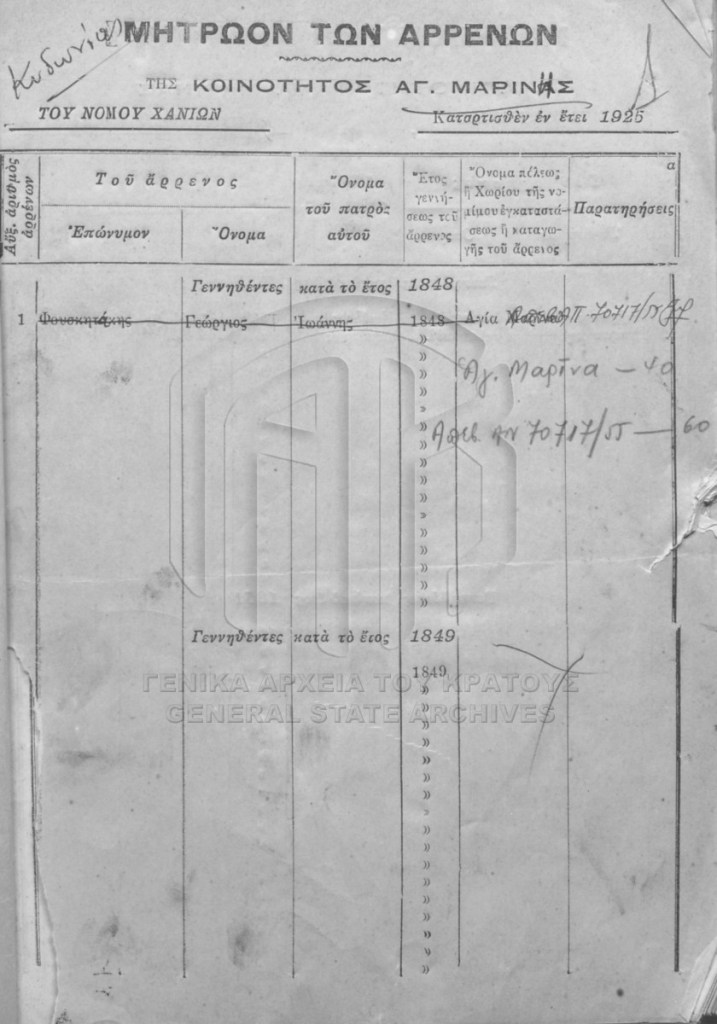 Κυδωνίας
ΜΗΤΡΩΟΝ ΤΩΝ ΑΡΡΕΝΩΝ
ΤΗΣ ΚΟΙΝΟΤΗΤΟΣ ΑΓ. ΜΑΡΙΝΗΣ
ΤΟΥ ΝΟΜΟΥ ΧΑΝΙΩΝ
Καταρτισθὲν ἐν ἔτει 1925
Αὔξ. ἀριθμὸς ἀρρένων
Τοῦ ἄρρενος
Ἐπώνυμον
Ὄνομα
Ὄνομα
τοῦ πατρὸς
αὐτοῦ
Ἔτος
γεννή-
σεως τοῦ
ἄρρενος
Ὄνομα πόλεως
ἢ Χωρίου τῆς νο-
μίμου ἐγκαταστά-
σεως ἢ καταγω-
γῆς τοῦ ἄρρενος
α
Παρατηρήσεις
Γεννηθέντες κατὰ τὸ ἔτος 1848
1 Φουσκητάκης Γεώργιος Ἰωάννης 1848 Ἁγία 70717/55
Ἁγ. Μαρῖνα — 40
70717/55 — 60
Γεννηθέντες κατὰ τὸ ἔτος 1849
1849
ΓΕΝΙΚΑ ΑΡΧΕΙΑ ΤΟΥ ΚΡΑΤΟΥΣ
GENERAL STATE ARCHIVES